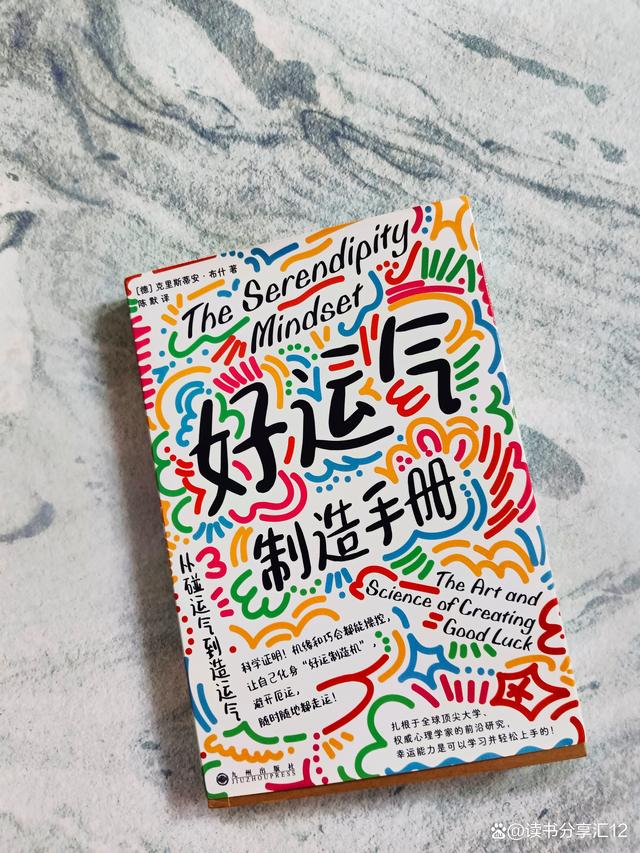 [德] 克里斯蒂安·布什 著
陈默 译
The Serendipity
Mindset
好运气
制造手册
从碰运气到造运气
The Art and
Science of Creating
Good Luck
科学证明！机缘和巧合都能操控，
让自己化身“好运制造机”，
避开厄运，
随时随地都走运！
扎根于全球顶尖大学、
权威心理学家的前沿研究，
幸运能力是可以学习并轻松上手的！
九州出版社
JIUZHOUPRESS
读书分享汇12